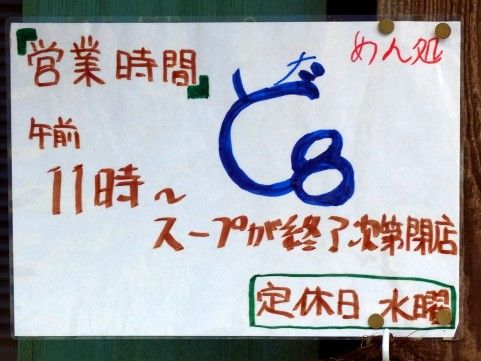 『営業時間』
めん処
ど8
午前
11時~
スープが終了次第閉店
定休日 水曜